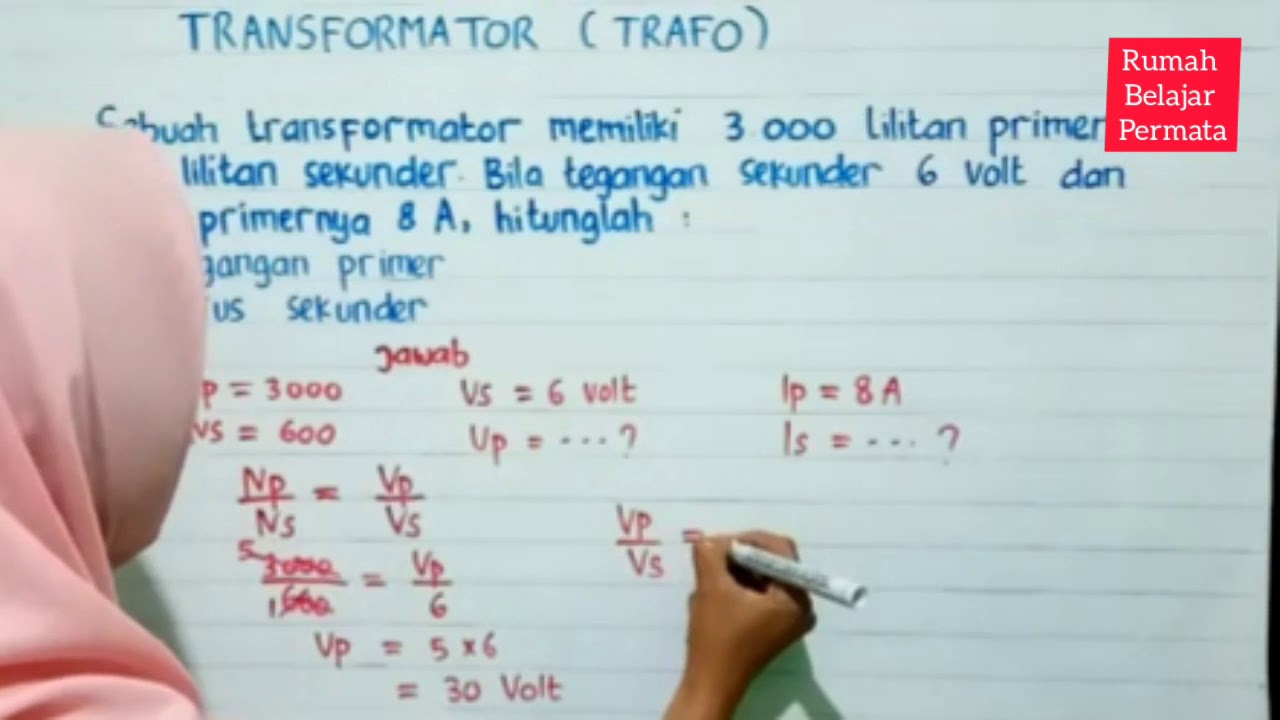 TRANSFORMATOR (TRAFO)
Rumah
Belajar
Permata
Sebuah transformator memiliki 3.000 lilitan primer
lilitan sekunder. Bila tegangan sekunder 6 volt dan
primernya 8 A, hitunglah :
gangan primer
us sekunder
Jawab
p = 3000
Vs = 6 volt
Ip = 8 A
Ns = 600
Vp = ... ?
Is = ... ?
Np/Ns = Vp/Vs
Vp/Vs =
5 3000/1 600 = Vp/6
Vp = 5 × 6
= 30 Volt